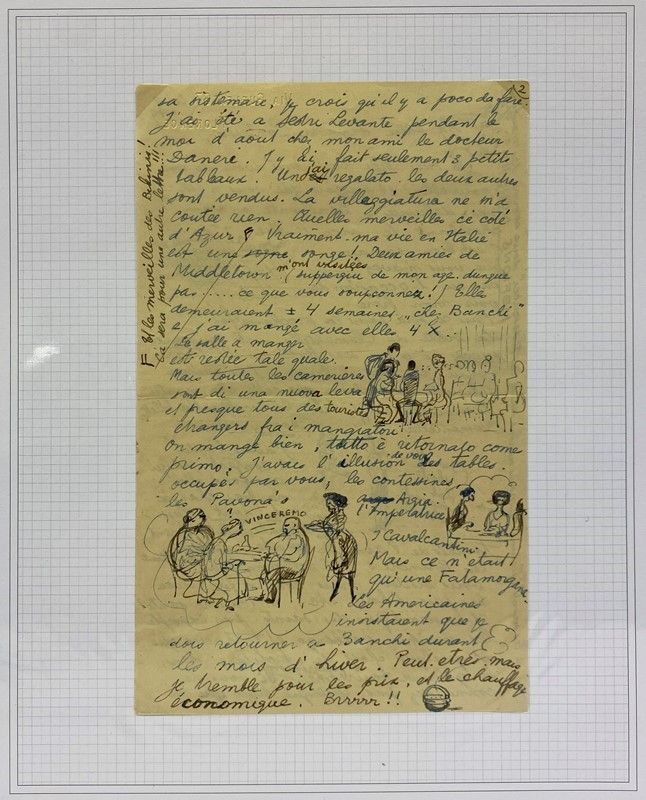 2
sa sistemare, je crois qu'il y a poco da fare.
J'ai été a Sestri Levante pendant le
moi d'aout chez mon ami le docteur
Danere. J'y ai fait seulement 3 petits
tableaux. Un j'ai regalato. les deux autres
sont vendus. La villeggiatura ne m'a
coutée rien. Quelles merveilles ce coté
d'Azur F Vraiment ma vie en Italie
est une songe! Deux amies de
Middletown m'ont visitées
(suppergiu de mon age. dunque
pas..... ce que vous soupçonnez!) Elles
demeuraient ± 4 semaines „chez Banchi"
e j'ai mangé avec elles 4 X..
La salle à manger
est restée tale quale.
Mais toutes les camerières
sont di una nuova leva
et presque tous des touristes
étrangers fra i mangiatori
On mange bien, tutto è ritornato come
primo; J'avais l'illusion de voir les tables.
occupés par vous, les contessines,
les Pavona's
Argia
l'Imperatrice
VINCEREMO
i Cavalcantini
Mais ce n'était
qu'une Fatamorgane.
Les Americaines
insistaient que je
dois retourner a Banchi durant
les mois d'hiver. Peut.etre, mais
je tremble pour les prix, et le chauffage
économique. Brrrrr!!
F Et les merveilles des Bikinis!
Ca sera pour une autre lettre!!!